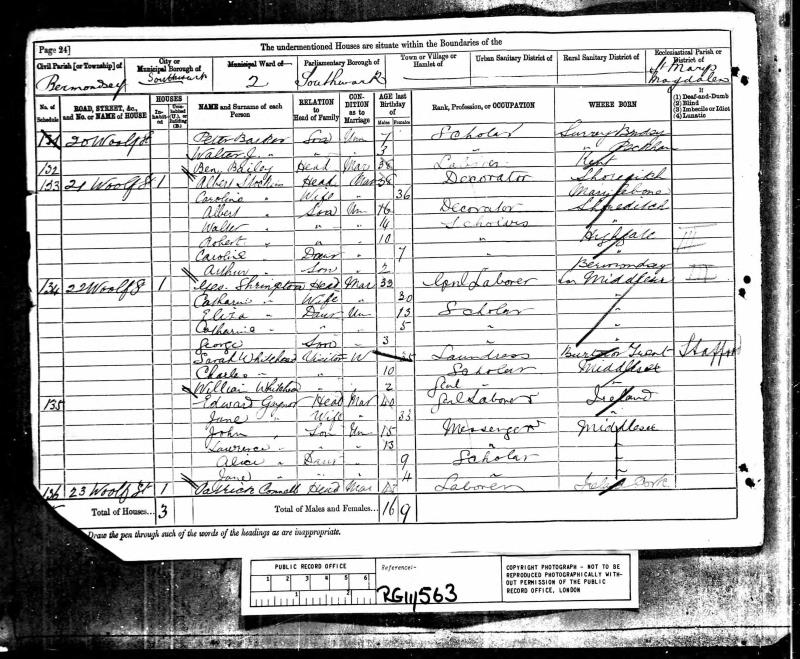 Page 24]
The undermentioned Houses are situate within the Boundaries of the
Civil Parish [or Township] of
City or Municipal Borough of
Municipal Ward of
Parliamentary Borough of
Town or Village or Hamlet of
Urban Sanitary District of
Rural Sanitary District of
Ecclesiastical Parish or District of
Bermondsey Southwark 2 Southwark St Mary Magdalen
No. of Schedule
ROAD, STREET, &c., and No. or NAME of HOUSE
HOUSES
NAME and Surname of each Person
RELATION to Head of Family
CONDITION as to Marriage
AGE last Birthday of
Males Females
Rank, Profession, or OCCUPATION
WHERE BORN
If
(1) Deaf-and-Dumb
(2) Blind
(3) Imbecile or Idiot
(4) Lunatic
20 Woolf St Peter Barker Son Unm 7 Scholar Surrey
Walter J. " " 3 " Peckham
132 Ben Bailey Head Mar 38 Kent
133 21 Woolf St 1 Albert Head Mar 38 Decorator Shoreditch
Caroline " Wife " 36 Marylebone
Albert " Son Un 16 Decorator Shoreditch
Walter " " " 14 "
Robert " " " 10 " Highgate III
Caroline " Daur 7 "
Arthur " Son " 2 Bermondsey
134 22 Woolf St 1 Geo. Head Mar 33 Genl Laborer Middlesex
Catharine " Wife " 30 "
Eliza " Daur Un 13 Scholar "
Catharine " " 5 " "
George " Son 3 "
Sarah Whitehead Visitor W Laundress Burton Trent Stafford
Charles " 10 Scholar Middlesex
William Whitehead " 2 "
135 Edward Gaynor Head Mar 40 Genl Laborer Ireland
Jane " Wife " 33 "
John " Son Un 15 Messenger Middlesex
Lawrence " " 13 " "
Alice " Daur 9 Scholar "
Jane " " 4 "
136 23 Woolf St 1 Patrick Head Mar Laborer Cork
Total of Houses... 3 Total of Males and Females... 16 9
Draw the pen through such of the words of the headings as are inappropriate.
PUBLIC RECORD OFFICE
1 2 3 4 5 6
1 2
Reference:-
RG11/563
COPYRIGHT PHOTOGRAPH - NOT TO BE
REPRODUCED PHOTOGRAPHICALLY WITH-
OUT PERMISSION OF THE PUBLIC
RECORD OFFICE, LONDON